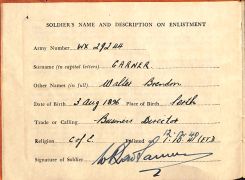 4
SOLDIER'S NAME AND DESCRIPTION ON ENLISTMENT
Army Number WX 29244
Surname (in capital letters) GARNER
Other Names (in full) Walles Brendon
Date of Birth 3 Aug 1896 Place of Birth Perth
Trade or Calling Business Director
Religion C of E. Enlisted at
Signature of Soldier